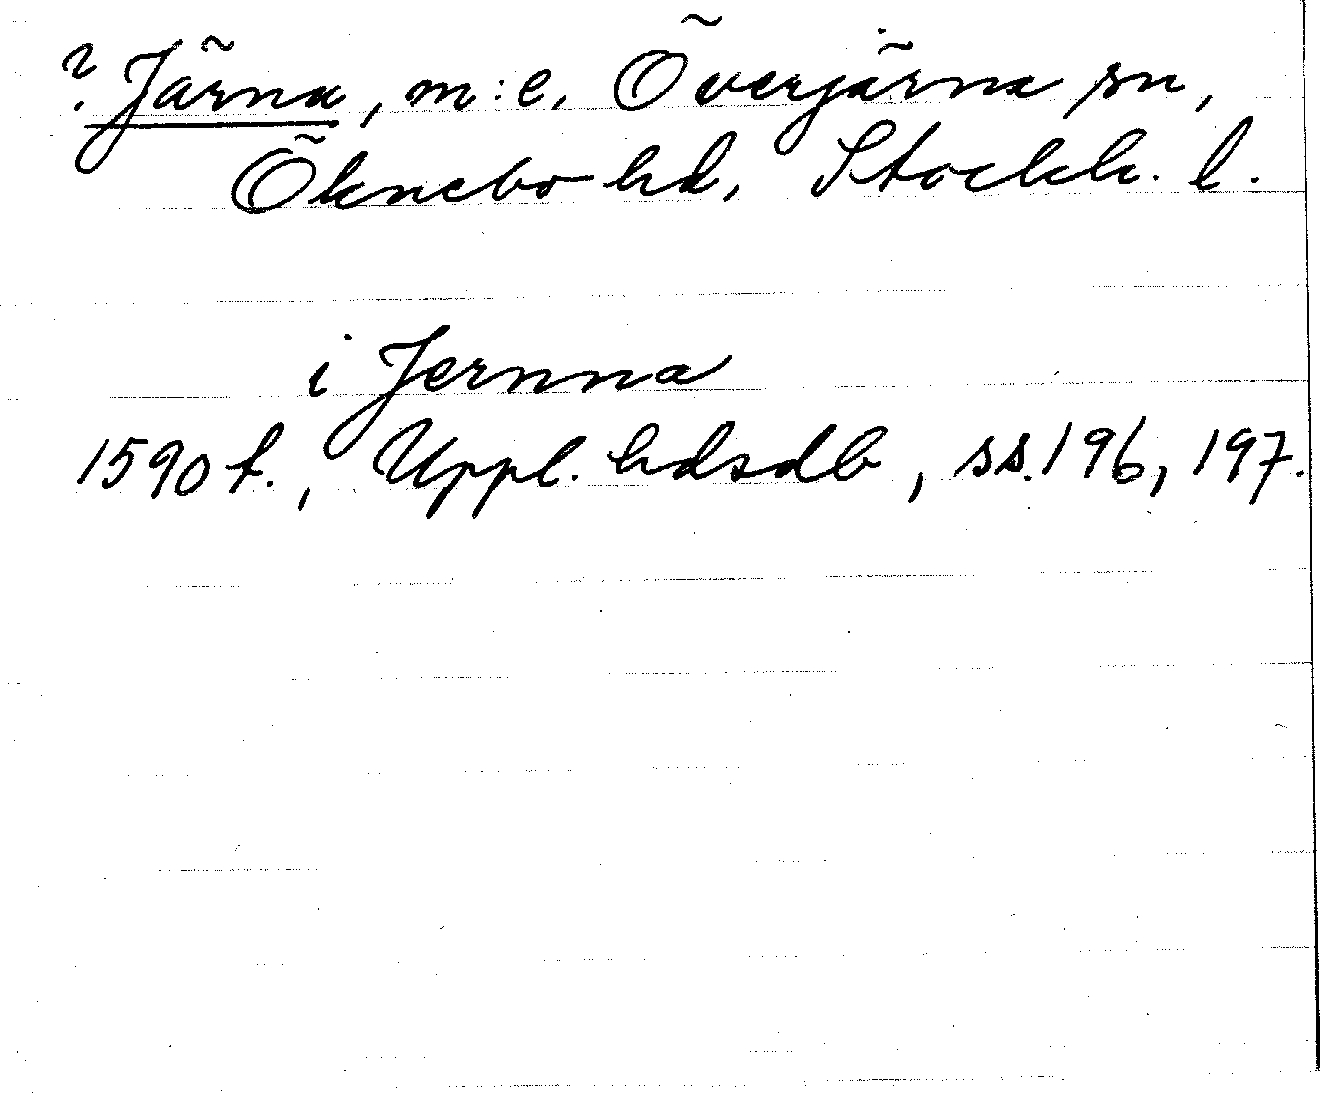 ? Järna, m:e. Överjärna sn,
Öknebo hd, Stockh. l.
i Jernna
1590 t., Uppl. hdsdb, ss. 196, 197.